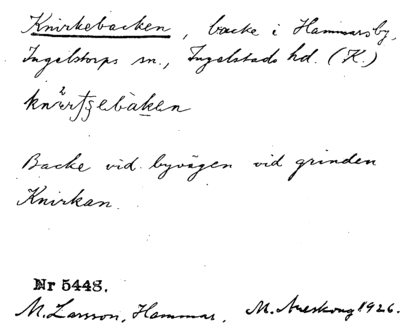 Knirkebacken, backe i Hammars by,
Ingelstorps sn., Ingelstads hd. (K.)
Backe vid byvägen vid grinden
Knirkan.
Nr 5448.
M. Larsson, Hammar. M. Areskoug 1926.